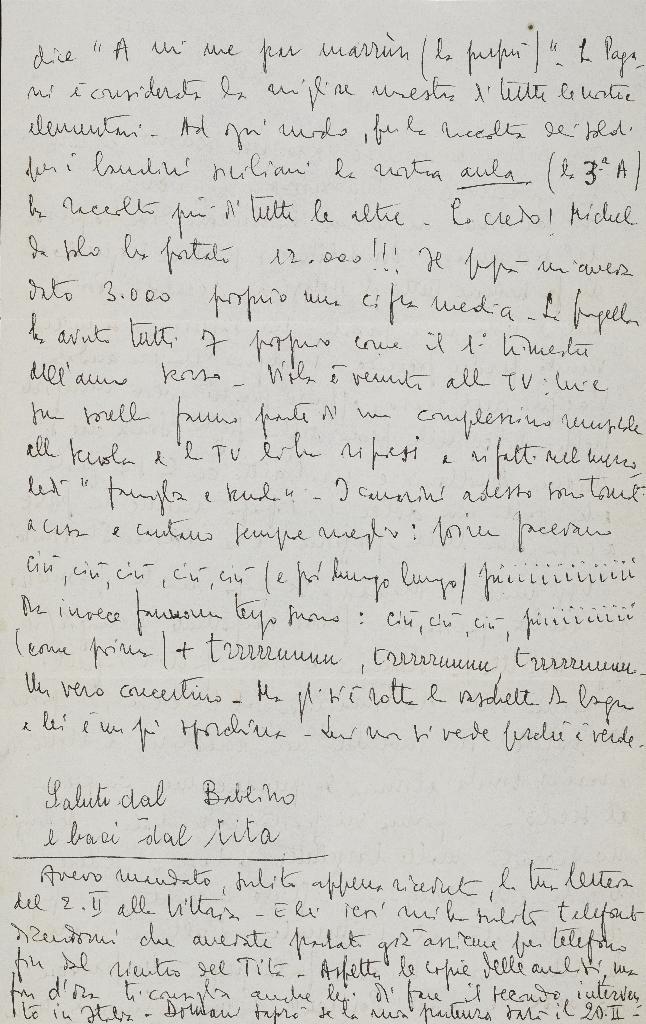 dice "A mi me par marrùn (la pupù)". La Paga-
ni è considerata la migliore maestra di tutte le nostre
elementari - Ad ogni modo, per la raccolta dei soldi
per i bambini siciliani la nostra aula (la 3ª A)
ha raccolto più di tutte le altre - Lo credo! Michele
da solo ha portato 12.000!!! Il papà mi aveva
dato 3.000 proprio una cifra media - La pagella
ha avuto tutti 7 proprio come il 1° trimestre
dell'anno scorso - Viola è venuta alla TV: lui e
sua sorella fanno parte di un complessino musicale
alla scuola e la TV li ha ripresi e rifatti nel merco-
ledì "famiglia e scuola" - I canarini adesso sono tornati
a casa e cantano sempre meglio: prima facevano
ciù, ciù, ciù, ciù, ciù (e poi lungo lungo) piiiiiiiiiiiiii
Ora invece fanno un terzo suono: ciù, ciù, ciù, piiiiiiiiiiii
(come prima) + trrrrrruuuu, trrrrrruuuu, trrrrrruuuu -
Un vero concertino - Ma gli si è rotta la vaschetta da bagno
e lei è un pò sporchina - Lui non si vede perché è verde -
Saluti dal Babbino
e baci dal Tita
Avevo mandato, subito appena ricevuta, la tua lettera
del 2.II alla Vittoria - E lei ieri mi ha subito telefonato
dicendomi che avevate parlato già assieme per telefono
fin dal rientro del Tita - Aspetta le copie delle analisi, ma
fin d'ora ti consiglia anche lei di fare il secondo interven-
to in Italia - Domani saprò se la mia partenza sarà il 20.II -